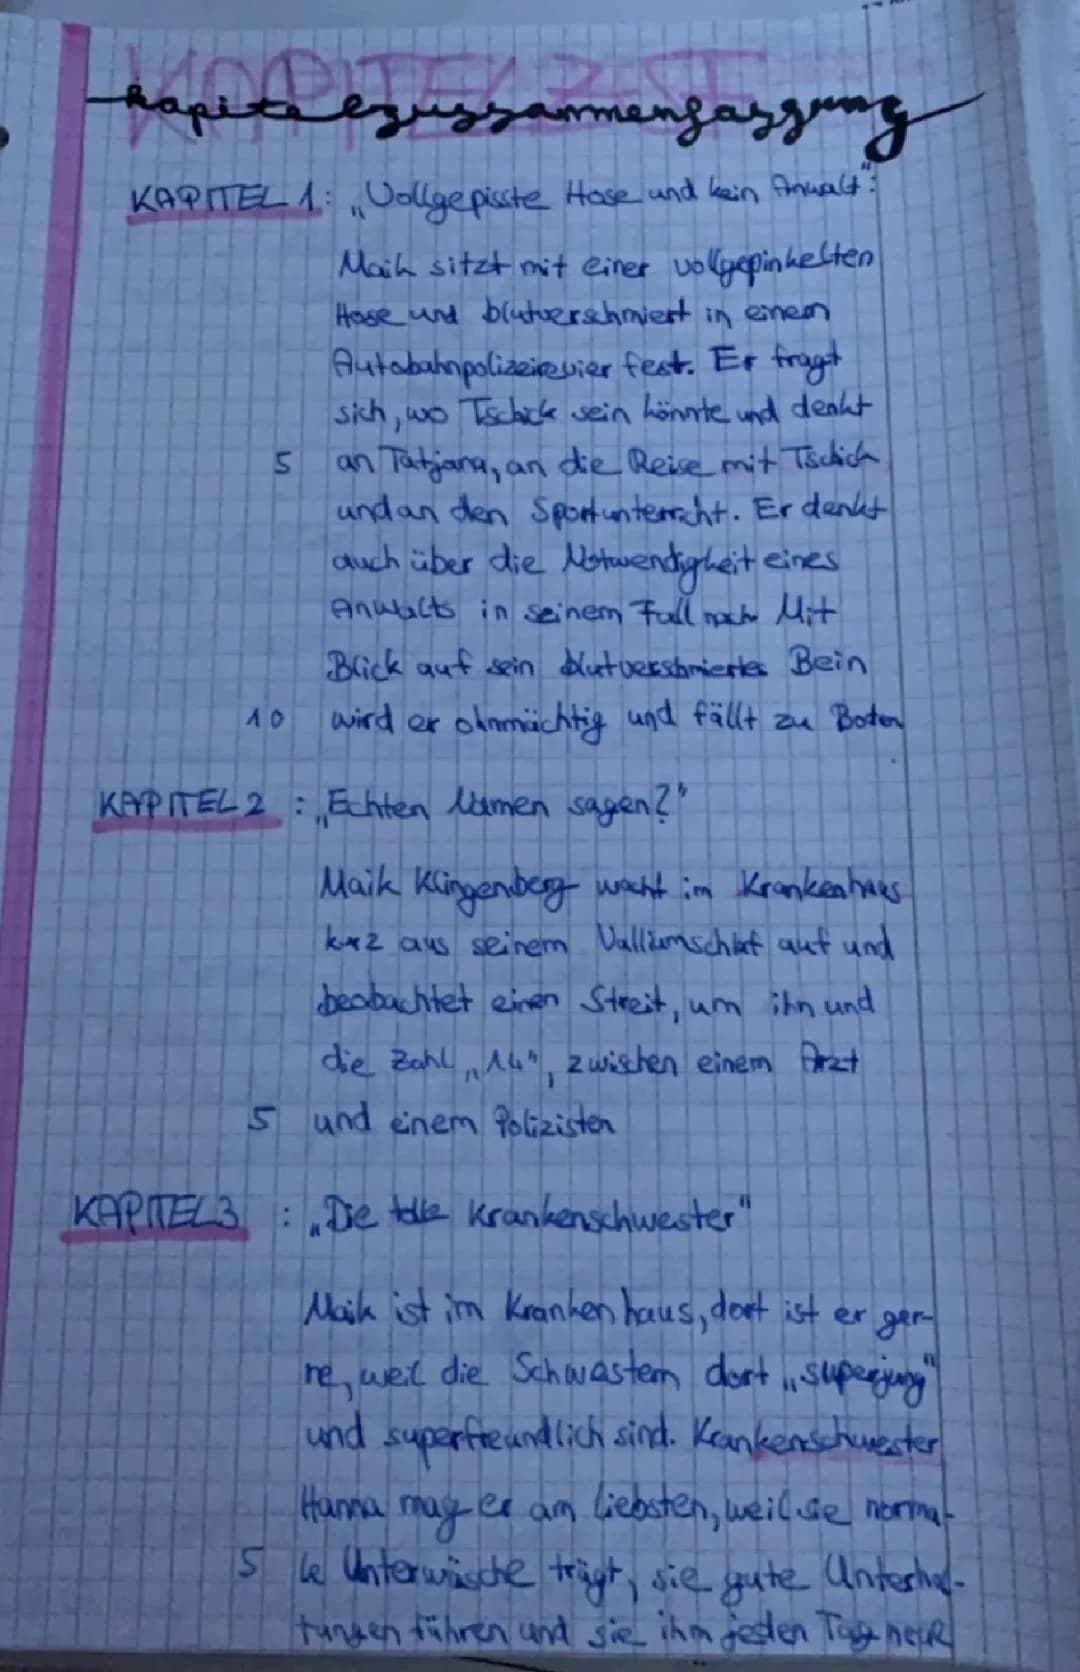 Kapitelzusammenfassung
KAPITEL 1: „Vollgepisste Hose und kein Anwalt":
Maik sitzt mit einer vollgepinkelten
Hose und blutverschmiert in einem
Autobahnpolizeirevier fest. Er fragt
sich, wo Tschick sein könnte und denkt
5 an Tatjana, an die Reise mit Tschick
und an den Sportunterricht. Er denkt
auch über die Notwendigkeit eines
Anwalts in seinem Fall nach. Mit
Blick auf sein blutverschmiertes Bein
10 wird er ohnmächtig und fällt zu Boden
KAPITEL 2 : „Echten Namen sagen?"
Maik Klingenberg wacht im Krankenhaus
kurz aus seinem Valliumschlaf auf und
beobachtet einen Streit, um ihn und
die Zahl „14", zwischen einem Arzt
5 und einem Polizisten
KAPITEL 3 : „Die tolle Krankenschwester"
Maik ist im Krankenhaus, dort ist er ger-
ne, weil die Schwestern dort „superjung"
und superfreundlich sind. Krankenschwester
Hanna mag er am liebsten, weil sie norma-
5 le Unterwäsche trägt, sie gute Unterhal-
tungen führen und sie ihm jeden Tag neue